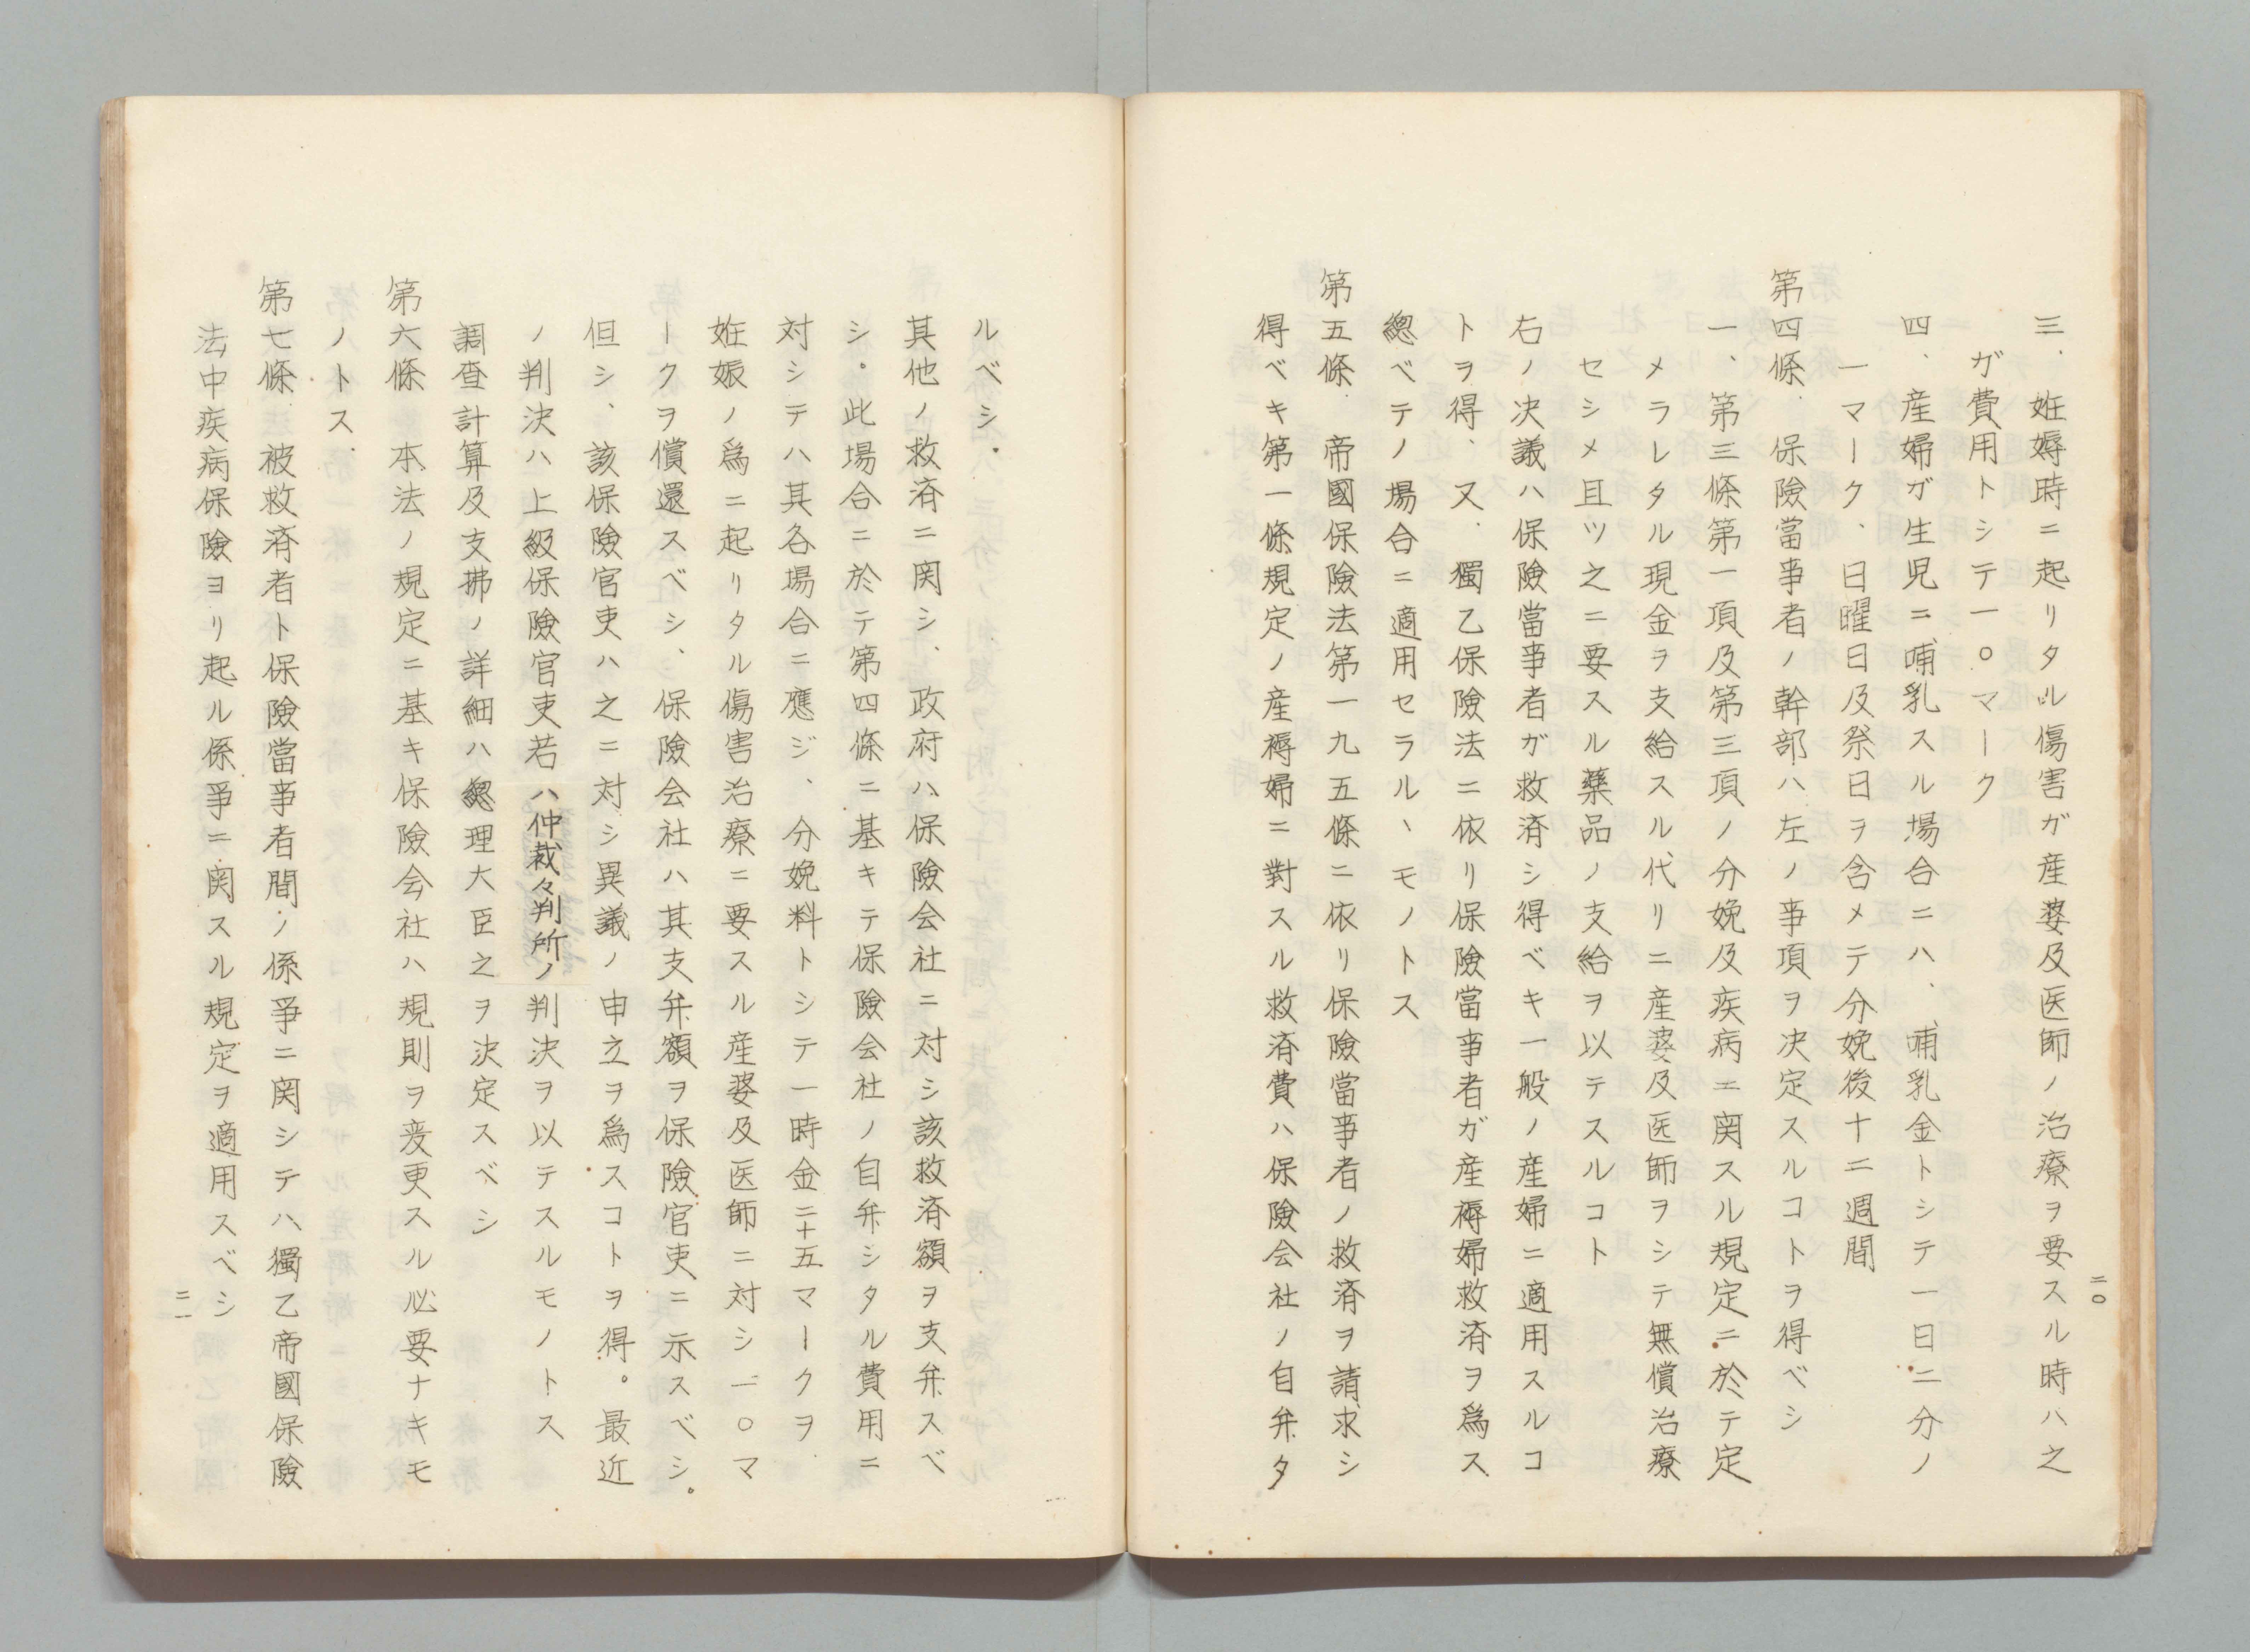 三、姙娠時ニ起リタル傷害ガ産婆及医師ノ治療ヲ要スル時ハ之
ガ費用トシテ一〇マーク
四、産婦ガ生児ニ哺乳スル場合ニハ、哺乳金トシテ一日ニ分ノ
一マーク、日曜日及祭日ヲ含メテ分娩後十二週間
第四條、保險當事者ノ幹部ハ左ノ事項ヲ決定スルコトヲ得ベシ
一、第三條第一項及第三項ノ分娩及疾病ニ関スル規定ニ於テ定
メラレタル現金ヲ支給スル代リニ産婆及医師ヲシテ無償治療
セシメ且ツ之ニ要スル藥品ノ支給ヲ以テスルコト
右ノ決議ハ保險當事者ガ救済シ得ベキ一般ノ産婦ニ適用スルコ
トヲ得、又、獨乙保險法ニ依リ保險當事者ガ産褥婦救済ヲ爲ス
總ベテノ場合ニ適用セラルヽモノトス
第五條、帝國保險法第一九五條ニ依リ保險當事者ノ救済ヲ請求シ
得ベキ第一條規定ノ産褥婦ニ對スル救済費ハ保險会社ノ自弁タ
二〇
ルベシ、
其他ノ救済ニ関シ、政府ハ保險会社ニ対シ該救済額ヲ支弁スベ
シ。此場合ニ於テ第四條ニ基キテ保險会社ノ自弁シタル費用ニ
対シテハ其各場合ニ應ジ、分娩料トシテ一時金二十五マークヲ
姙娠ノ爲ニ起リタル傷害治療ニ要スル産婆及医師ニ対シ一〇マ
ークヲ償還スベシ、保險会社ハ其支弁額ヲ保險官吏ニ示スベシ。
但シ、該保險官吏ハ之ニ対シ異議ノ申立ヲ爲スコトヲ得。最近
ノ判決ハ上級保險官吏若ハ仲裁々判所ノ判決ヲ以テスルモノトス
調査計算及支拂ノ詳細ハ總理大臣之ヲ決定スベシ
第六條　本法ノ規定ニ基キ保險会社ハ規則ヲ変更スル必要ナキモ
ノトス、
第七條、被救済者ト保險當事者間ノ係爭ニ関シテハ獨乙帝國保險
法中疾病保險ヨリ起ル係爭ニ関スル規定ヲ適用スベシ
二一